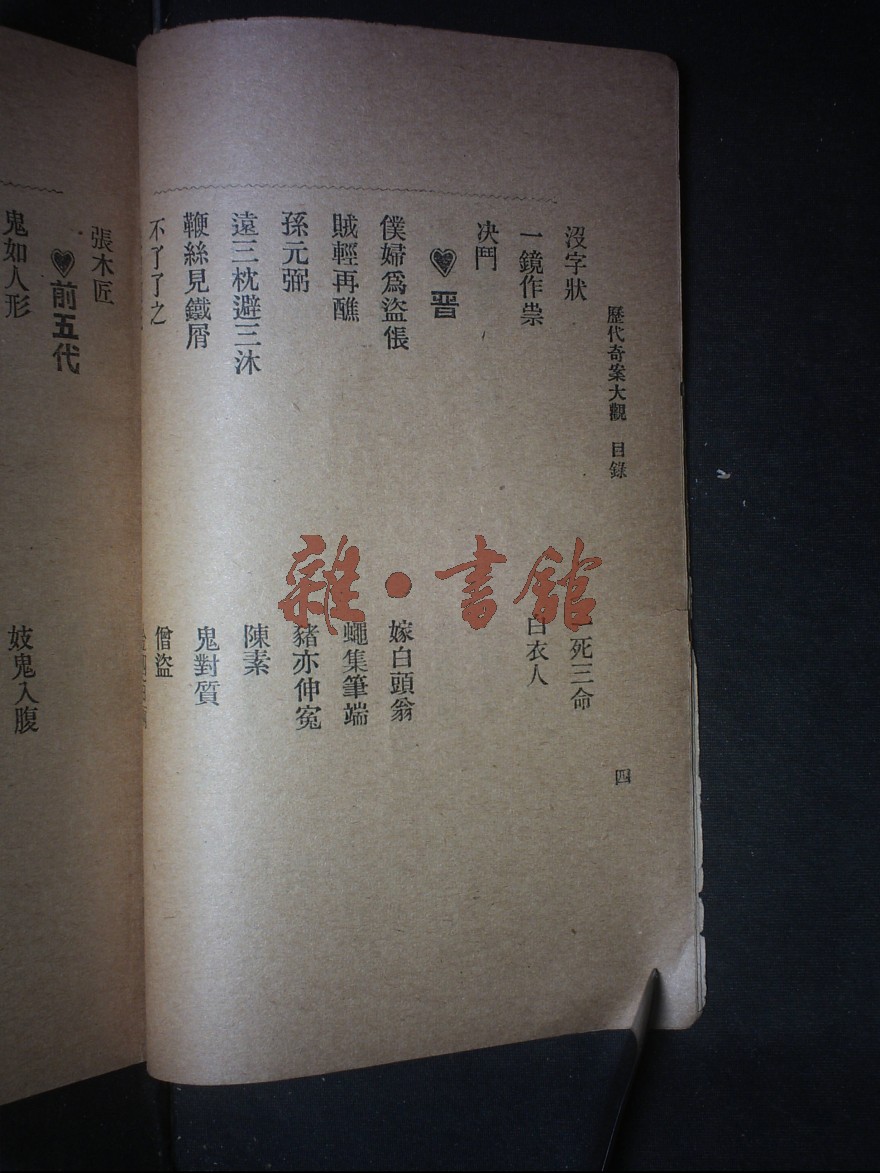 歷代奇案大觀 目錄
四
沒字狀
死三命
一鏡作祟
白衣人
决鬥
♥ 晋
僕婦爲盜倀
嫁白頭翁
賊輕再醮
蠅集筆端
孫元弼
豬亦仲寃
遠三枕避三沐
陳素
鞭絲見鐵屑
鬼對質
不了了之
僧盜
張木匠
♥ 前五代
鬼如人形
妓鬼入腹
雜·書館